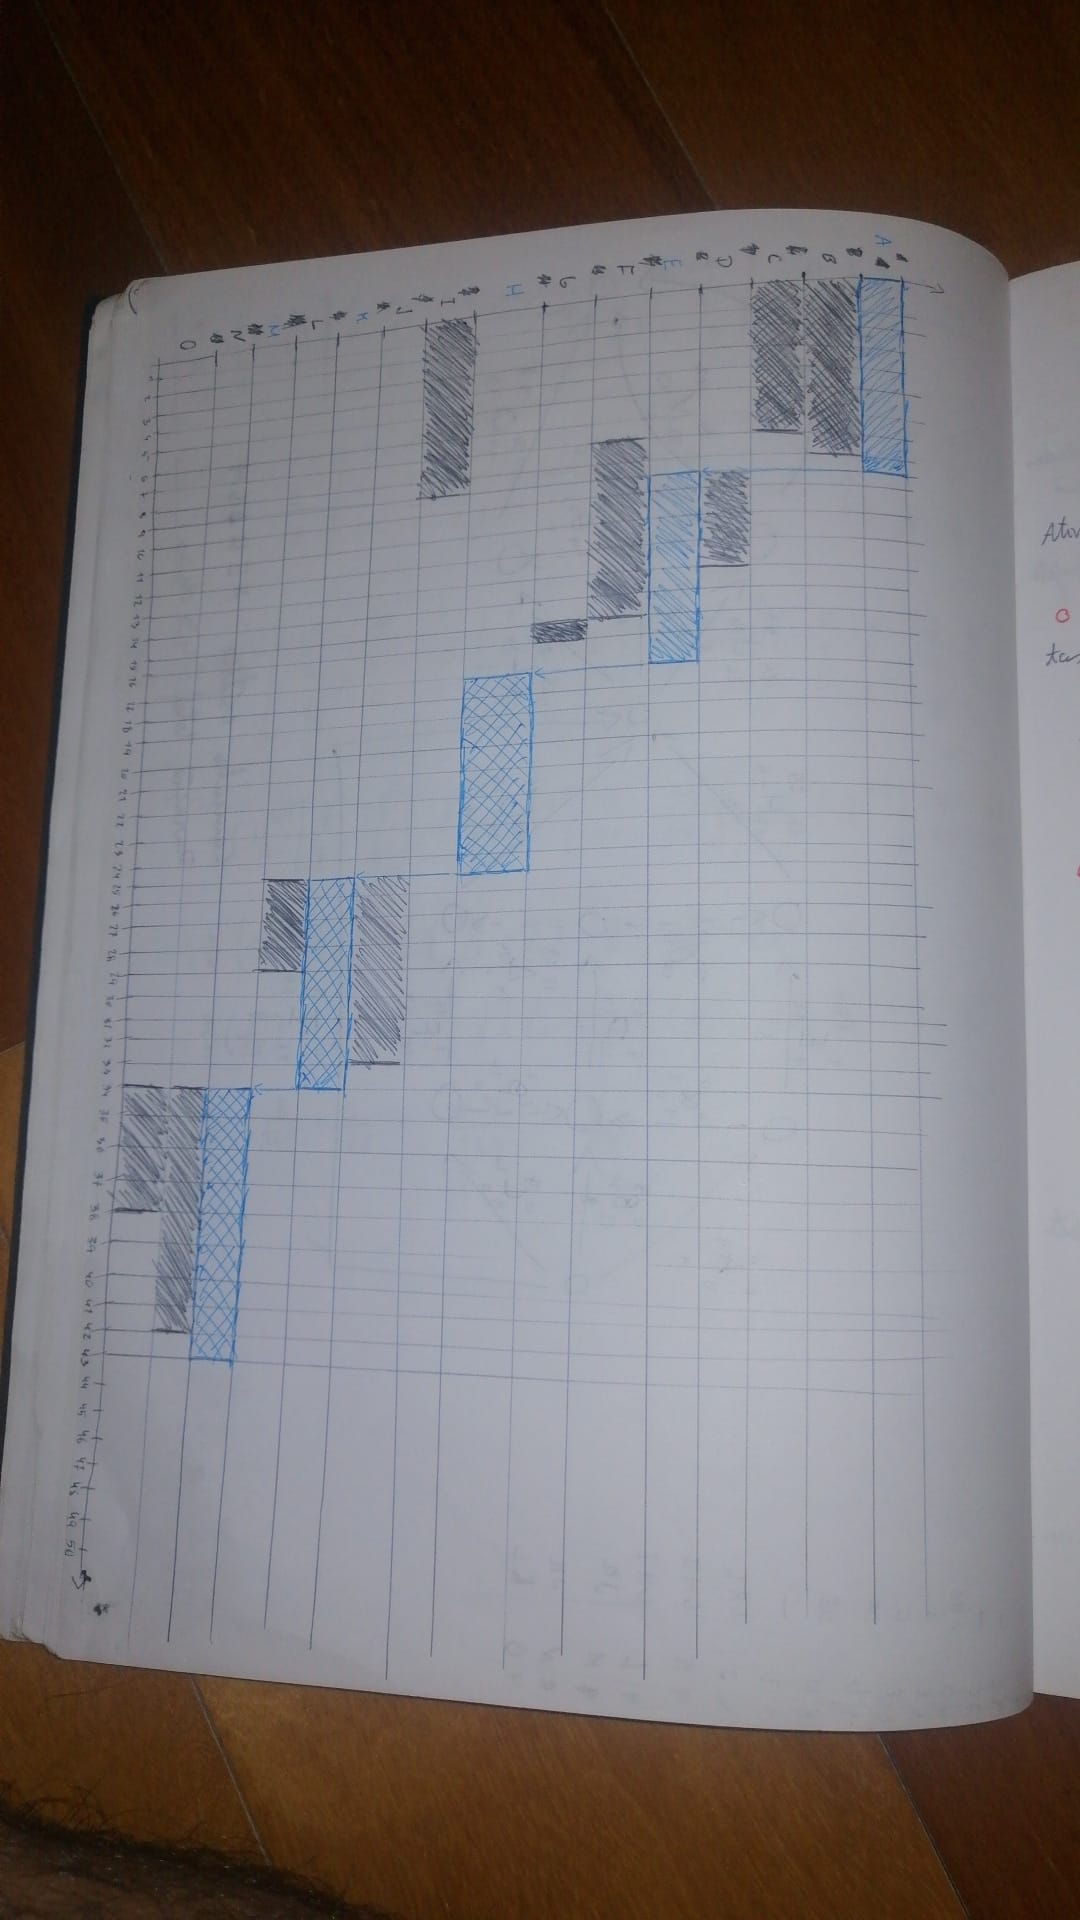 A
B
C
D
E
F
G
H
I
J
K
L
M
N
O
1 2 3 4 5 6 7 8 9 10 11 12 13 14 15 16 18 19 20 21 22 23 24 25 26 27 28 29 30 31 32 33 34 35 36 37 38 39 40 41 42 43 44 45 46 47 48 49 50